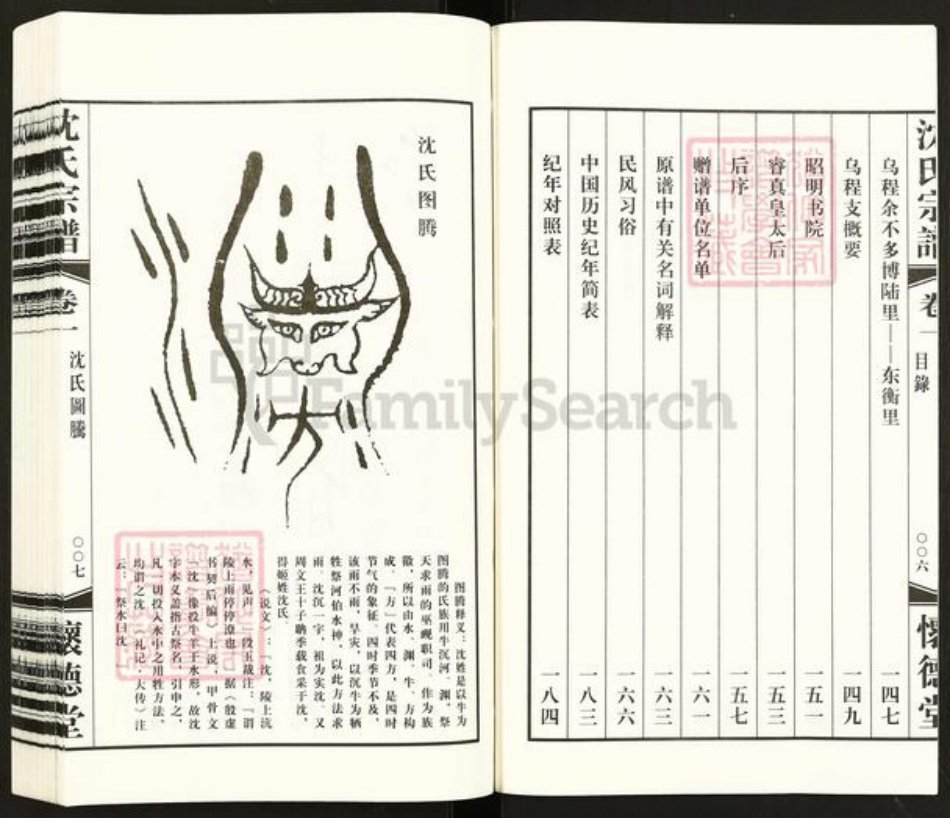 沈氏宗譜
卷一
目錄
〇〇六
懷德堂
乌程余不多博陆里——东衡里
一四七
乌程支概要
一四九
昭明书院
一五一
睿真皇太后
一五三
后序
一五七
赠谱单位名单
一六一
原谱中有关名词解释
一六三
民风习俗
一六六
中国历史纪年简表
一八三
纪年对照表
一八四
沈氏图腾
图腾释义：沈姓是以牛为
图腾的氏族用牛沉河、渊，祭
天求雨的巫觋职司、作为族
徽，所以由水、渊、牛、方构
成。「方」代表四方，是四时
节气的象征、四时季节不及，
该雨不雨，旱灾，以沉牛为牺
牲祭河伯水神，以此方法求
雨、沈沉一字，祖为实沈、又
周文王十子聃季载食采于沈，
得姬姓沈氏。
《说文》：「沈，陵上滈
水，见声 段玉裁注：「谓
陵上雨停停潦也 据《殷虚
书契后编》上说，甲骨文
「沈」像投牛羊于水形，故沈
字本义盖指古祭名，引申之，
凡一切投入水中之用牲方法，
均谓之沈。《礼记·大传》注
云：「祭水曰沈
沈氏宗譜
卷一
沈氏圖騰
〇〇七
懷德堂
FamilySearch